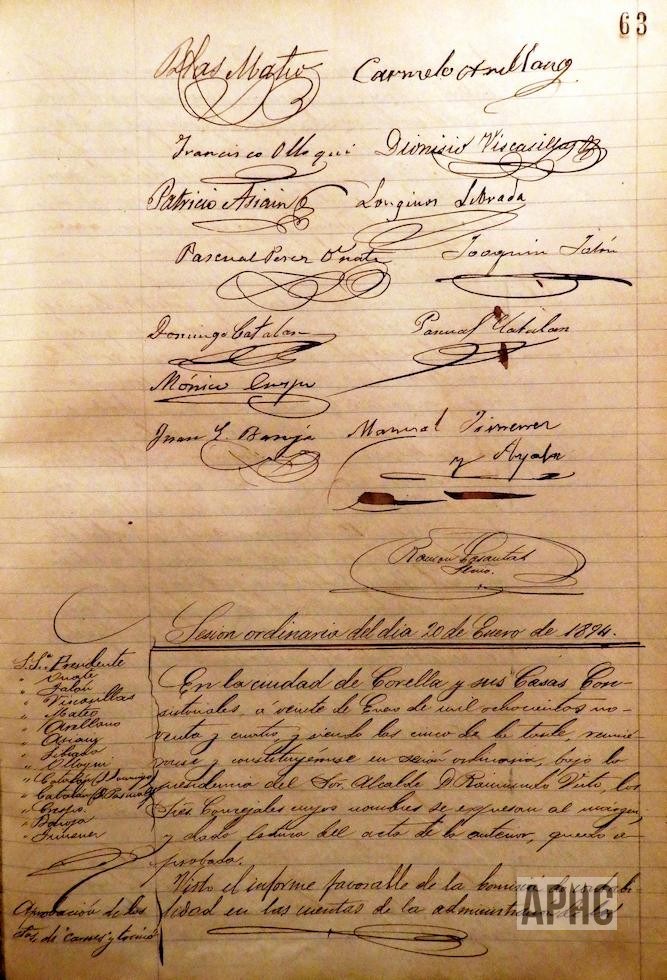 63
Blas Mateo Carmelo Arellano
Francisco Olloqui Dionisio Viscasillas
Patricio Asiain Longinos Librada
Pascual Perez Oñate Joaquin Jalón
Domingo Catalan Pascual Catalan
Mónico Crespo
Juan L. Baroja Manuel Jimenez
y Ayala
Ramón
Srio.
Sesion ordinaria del dia 20 de Enero de 1894.
S.S. Presidente
" Oñate
" Jalon
" Viscasillas
" Mateo
" Arellano
" Asiain
" Librada
" Olloqui
" Catalan (D. Domingo)
" Catalan (D. Pascual)
" Crespo
" Baroja
" Jimenez
En la ciudad de Corella y sus Casas Con-
sistoriales, a veinte de Enero de mil ochocientos no-
venta y cuatro, y siendo las cinco de la tarde, reunié-
ronse y constituyéronse en sesión ordinaria, bajo la
presidencia del Sor. Alcalde D. Raimundo Virto, los
Sres. Concejales cuyos nombres se expresan al margen,
y dada lectura del acta de la anterior, quedó a-
probada.
Aprobación de las
ctas. de "carnes y tocino"
Visto el informe favorable de la Comisión de contabi-
lidad en las cuentas de la administración de las
APHC